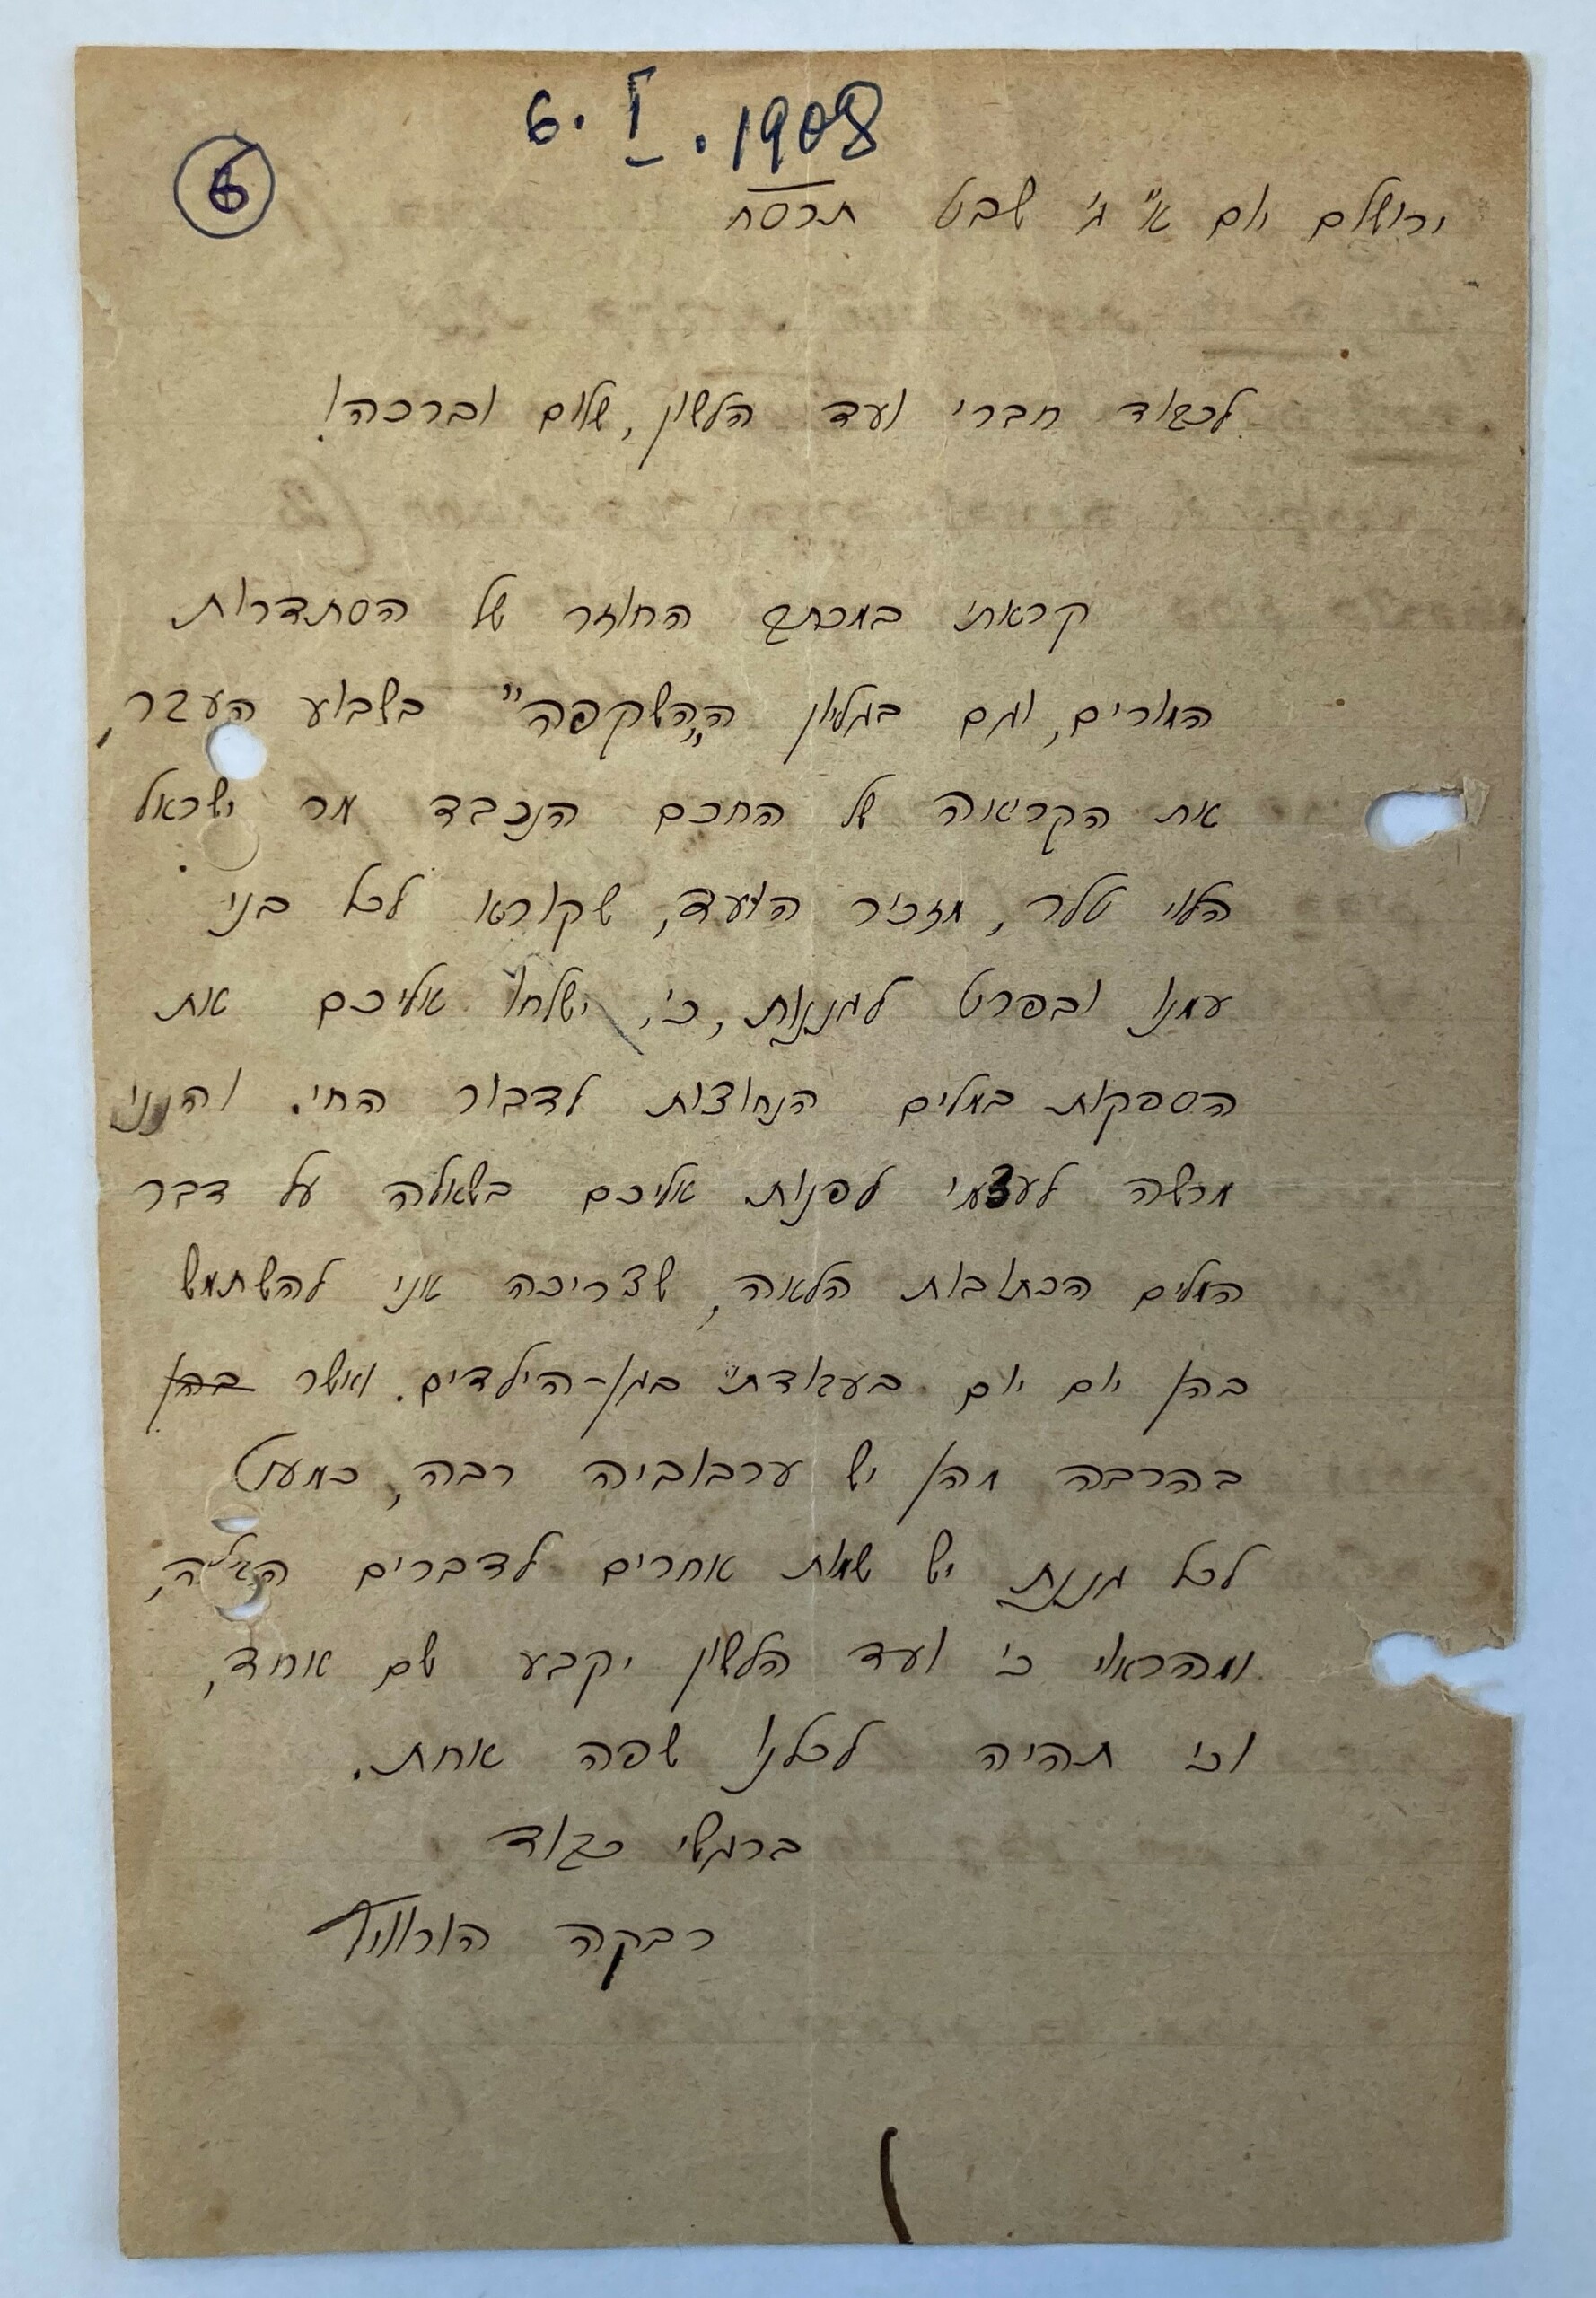 6. I. 1908
6
ירושלם יום א' ג' שבט תרסח
לכבוד חברי ועד הלשון, שלום וברכה!
קראתי במכתב החוזר של הסתדרות
המורים, וגם בגליון ה„השקפה" בשבוע העבר,
את הקריאה של החכם הנכבד מר ישראל
הלוי טלר, מזכיר הועד, שקורא לכל בני
עמנו ובפרט לגננות, כי ישלחו אליכם את
הספקות במלים הנחוצות לדבור החי. והנני
מרשה לעצמי לפנות אליכם בשאלה על דבר
המלים הכתובות הלאה, שצריכה אני להשתמש
בהן יום יום בעבודתי בגן-הילדים. ואשר בהן
בהרבה מהן יש ערבוביה רבה, כמעט
לכל גננת יש שמות אחרים לדברים האלה,
ומהראוי כי ועד הלשון יקבע שם אחד,
וכי תהיה לכלנו שפה אחת.
ברגשי כבוד
רבקה הורוויץ